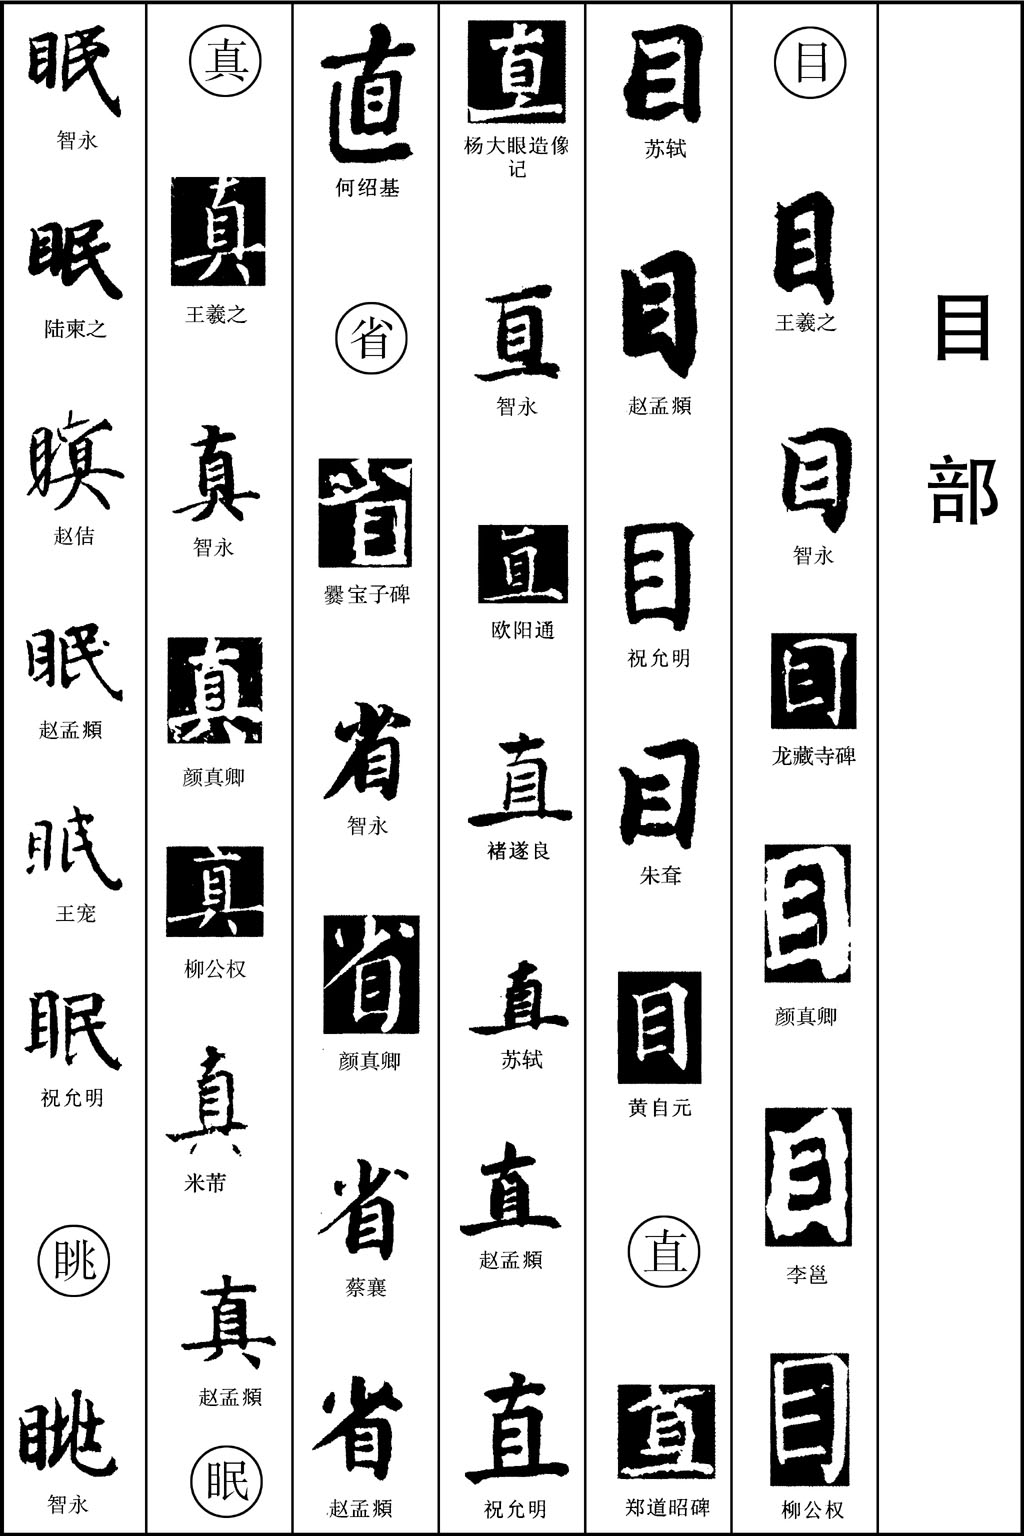 目部
目
目
王羲之
目
智永
目
龙藏寺碑
目
颜真卿
目
李邕
目
柳公权
目
苏轼
目
赵孟頫
目
祝允明
目
朱耷
目
黄自元
直
直
郑道昭碑
直
杨大眼造像
记
直
智永
直
欧阳通
直
褚遂良
直
苏轼
直
赵孟頫
直
祝允明
直
何绍基
省
省
爨宝子碑
省
智永
省
颜真卿
省
蔡襄
省
赵孟頫
真
真
王羲之
真
智永
真
颜真卿
真
柳公权
真
米芾
真
赵孟頫
眠
眠
智永
眠
陆柬之
瞑
赵佶
眠
赵孟頫
眠
王宠
眠
祝允明
眺
眺
智永